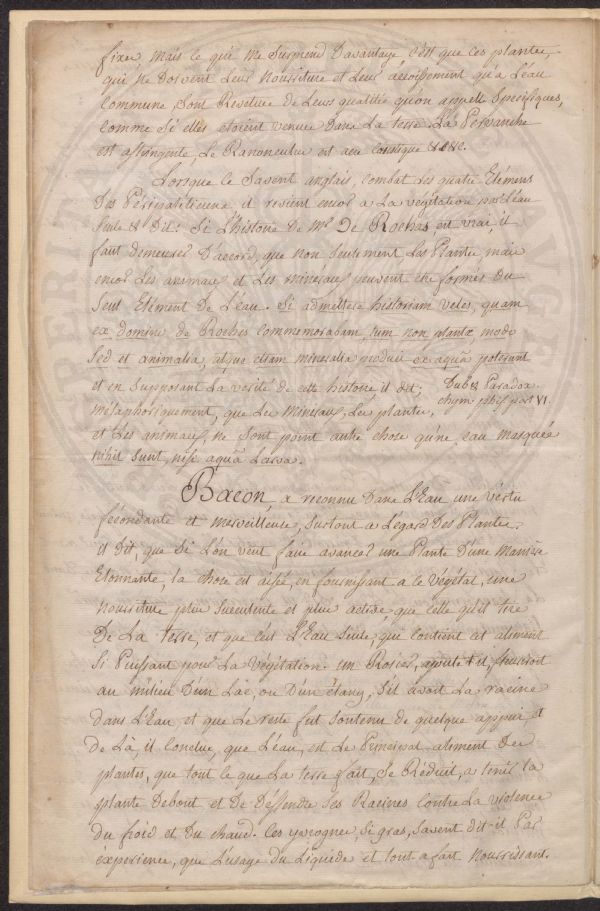 fixer, mais ce qui me surprend davantage, c'est que ces plantes,
qui ne doivent leur nourriture et leur accoissement qu'a l'eau
commune sont Revetues de Leurs qualités qu'on appelle Specifiques,
comme si elles etoient venues dans La terre. La Pervanche
est astringente, Le Ranoncule est acre caustique &c &c.
Lorsque le savent anglais, combat les quatre Elemens
des Péripatéticiens il revient encor a La végétation par l'eau
seule & dit: Si L'histoire de mr De Rochas, est vrai, il
faut demeurer D'accord, que non seulement Les Plantes, mais
encor Les animaux et Les minéraux peuvent etre formés du
seul Elément de L'eau. Si admittere historiam velis, quam
ex domino de Roches commemorabam, tum non plantæ, modo
sed et animalia, atque etiam mineralia produci ex aquâ poterant
et en supposant La verité de cette histoire il dit;
Dub & Paradox.
chym phisf part VI.
métaphoriquement, que Les Mineraux, Les plantes,
et Les animaux, ne sont point autre chose qu'une eau masquée
nihil sunt, nisi aquâ Larva.
Bacon, a reconnu dans L'Eau une vertu
fécondante et merveilleuse, surtout a L'égard des Plantes.
il dit, que si L'on veut faire avancer une Plante d'une Maniere
Etonnante, la chose est aisée, en fournissant a ce végétal, une
nourriture plus succulente et plus active, que celle qu'il tire
De La terre, et que c'est L'Eau seule, que contient cet aliment
si Puissant pour La végétation. un Rosier, ajoute t il, fleuriroit
au milieu D'un Lac, ou D'un étang, s'il avoit La racine
dans L'Eau et que Le reste fut soutenu de quelque appui, et
de Là, il conclue, que L'eau, est Le Principal aliment Des
plantes, que tout ce que La terre fait, se Réduit, a tenir La
plante Debout et De Défendre ses Racines contre La violence
du froid et du chaud. Ces yvrognes, si gras, savent dit-il Par
éxperience, que L'usage du Liquide est tout a fait nourrissant.